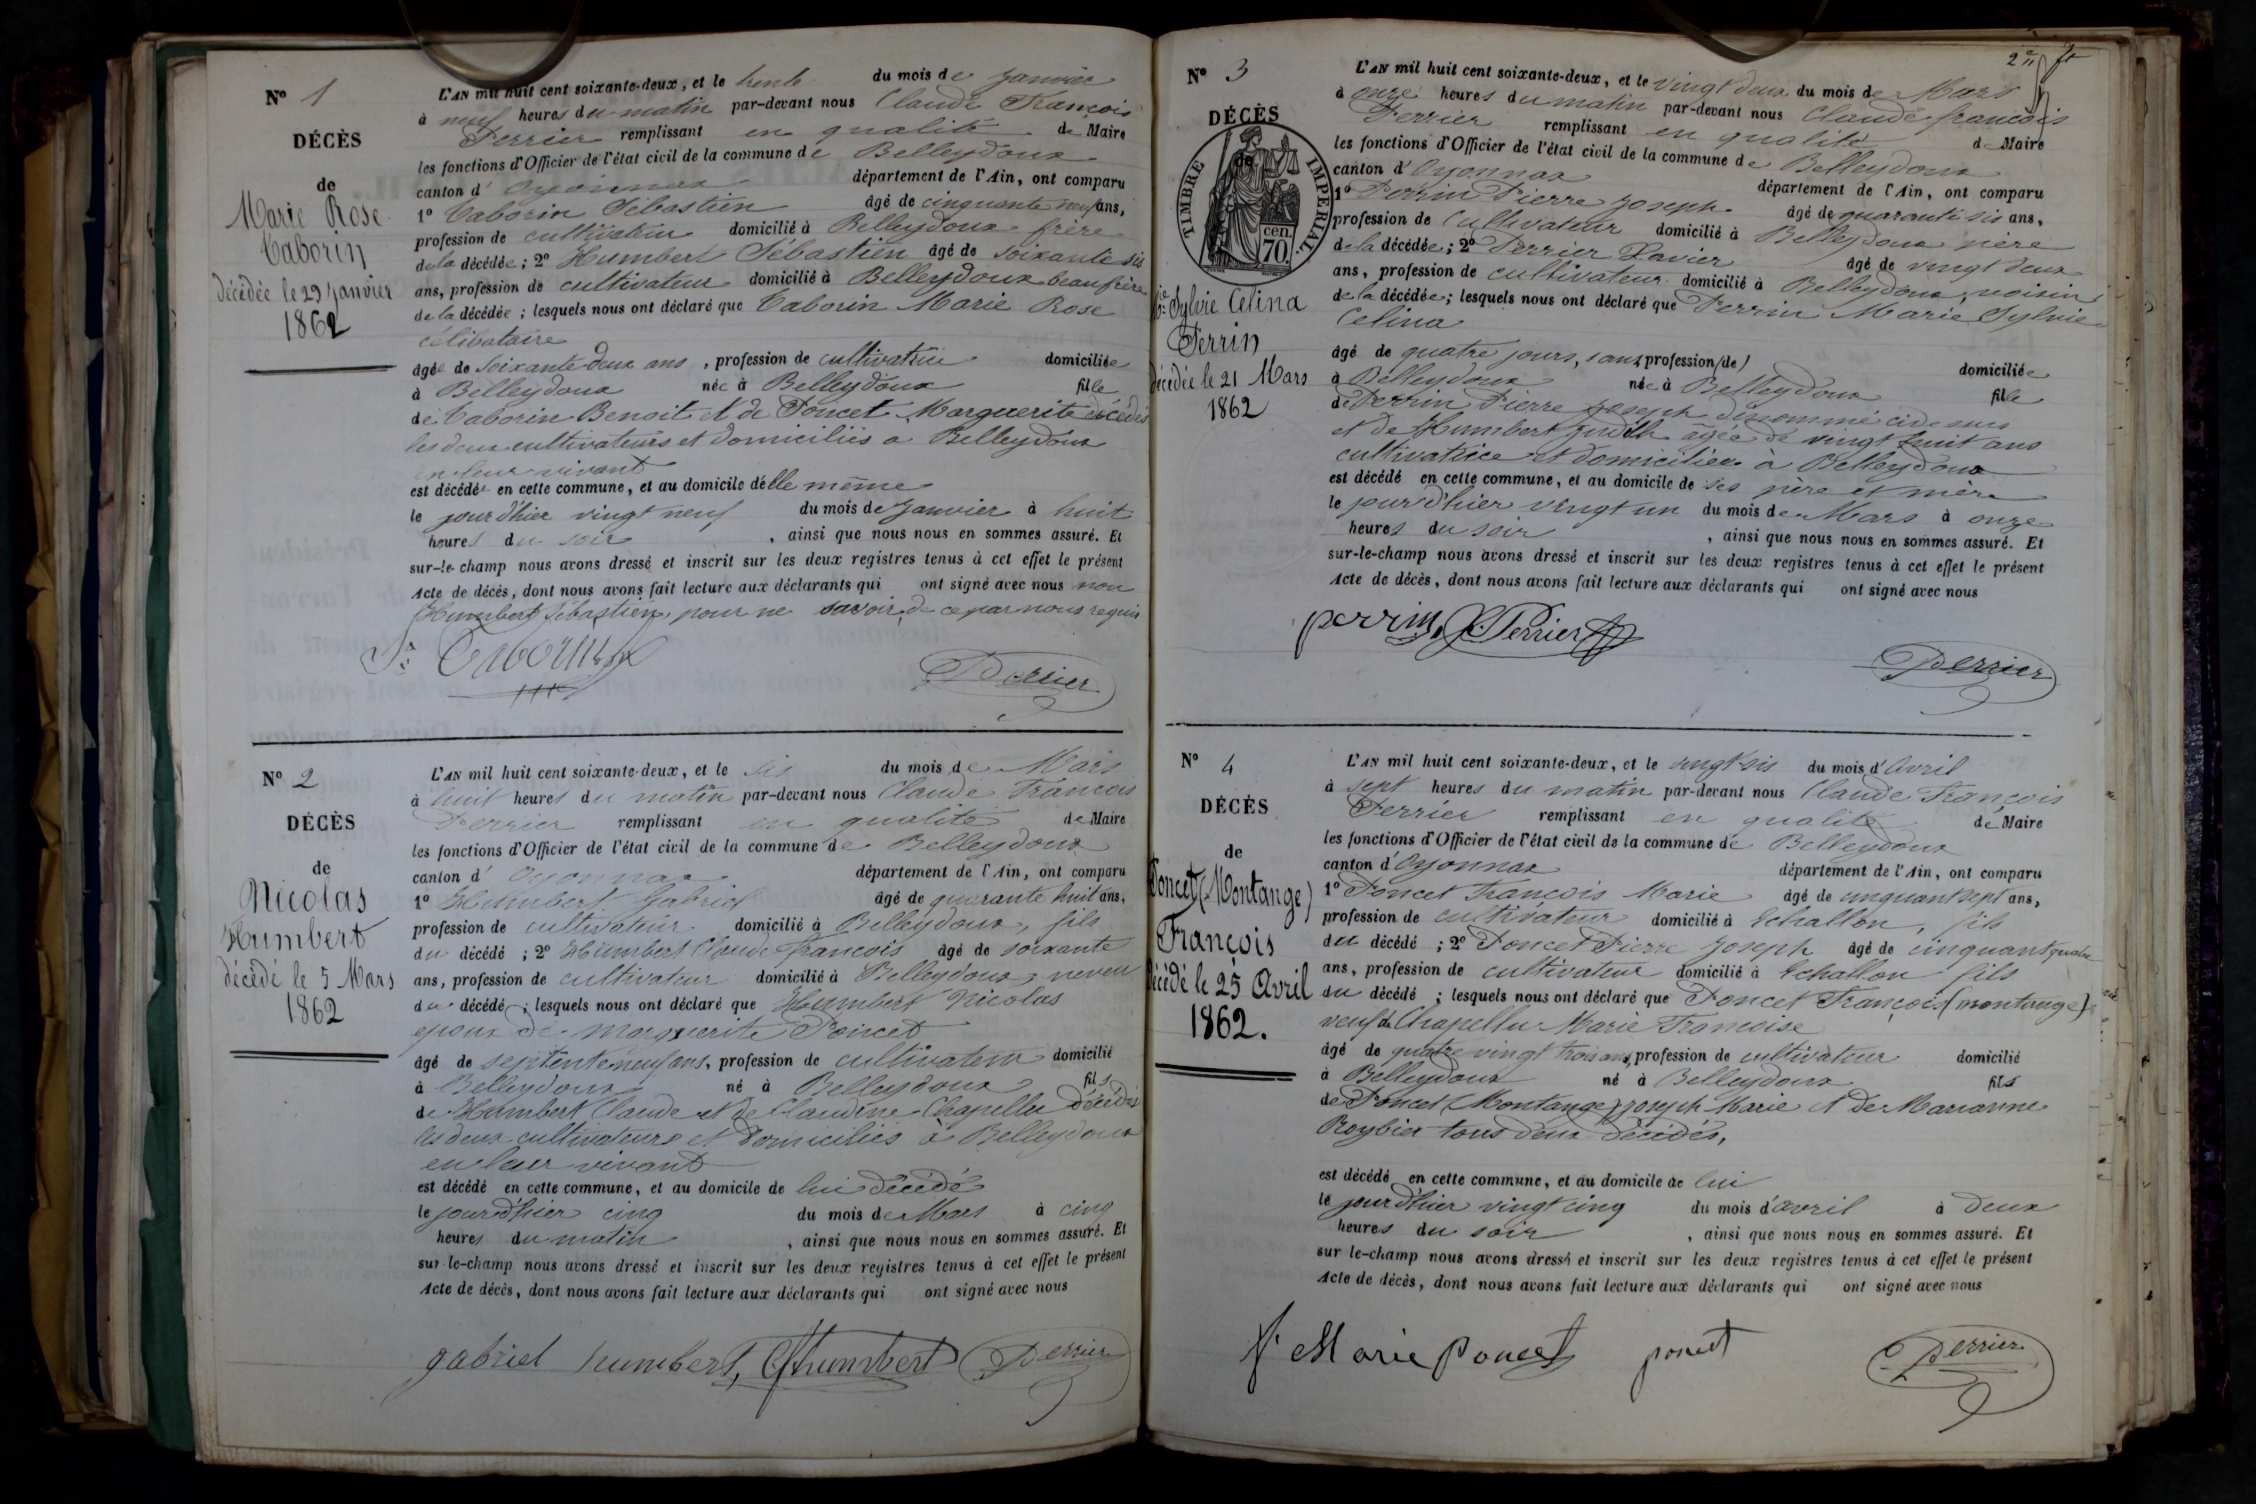 N° 1
DÉCÈS
de
Marie Rose
Taborin
décédée le 29 Janvier
1862
L'AN mil huit cent soixante-deux, et le trente du mois de Janvier
à neuf heures du matin par-devant nous Claude François
Perrier remplissant en qualité de Maire
les fonctions d'Officier de l'état civil de la commune de Belleydoux
canton d' Oyonnax département de l'Ain, ont comparu
1° Taborin Sébastien âgé de cinquante neuf ans,
profession de cultivateur domicilié à Belleydoux frère
de la décédée; 2° Humbert Sébastien âgé de soixante six
ans, profession de cultivateur domicilié à Belleydoux beaufrère
de la décédée; lesquels nous ont déclaré que Taborin Marie Rose
célibataire
âgée de soixante deux ans, profession de cultivatrice domiciliée
à Belleydoux née à Belleydoux fille
de Taborin Benoit et de Poncet Marguerite décédés
les deux cultivateurs et domiciliés à Belleydoux
en leur vivant
est décédée en cette commune, et au domicile d'elle même
le jour d'hier vingt neuf du mois de Janvier à huit
heures du soir, ainsi que nous nous en sommes assuré. Et
sur-le-champ nous avons dressé et inscrit sur les deux registres tenus à cet effet le présent
Acte de décès, dont nous avons fait lecture aux déclarants qui ont signé avec nous non
Humbert Sébastien, pour ne savoir de ce par nous requis
Sn Taborin
Perrier
N° 2
DÉCÈS
de
Nicolas
Humbert
décédé le 5 Mars
1862
L'AN mil huit cent soixante-deux, et le six du mois de Mars
à huit heures du matin par-devant nous Claude François
Perrier remplissant en qualité de Maire
les fonctions d'Officier de l'état civil de la commune de Belleydoux
canton d' Oyonnax département de l'Ain, ont comparu
1° Humbert Gabriel âgé de quarante huit ans,
profession de cultivateur domicilié à Belleydoux, fils
du décédé; 2° Humbert Claude françois âgé de soixante
ans, profession de cultivateur domicilié à Belleydoux, neveu
du décédé; lesquels nous ont déclaré que Humbert Nicolas
epoux de marguerite Poncet
âgé de septente neuf ans, profession de cultivateur domicilié
à Belleydoux né à Belleydoux fils
de Humbert Claude et de Claudine Chapellu décédés
les deux cultivateurs et domiciliés à Belleydoux
en leur vivant
est décédé en cette commune, et au domicile de lui décédé
le jour d'hier cinq du mois de Mars à cinq
heures du matin, ainsi que nous nous en sommes assuré. Et
sur-le-champ nous avons dressé et inscrit sur les deux registres tenus à cet effet le présent
Acte de décès, dont nous avons fait lecture aux déclarants qui ont signé avec nous
gabriel humbert, Cf humbert Perrier
2e ft
N° 3
DÉCÈS
de
TIMBRE IMPÉRIAL
70 cen.
Mie Sylvie Celina
Perrin
décédée le 21 Mars
1862
L'AN mil huit cent soixante-deux, et le vingt deux du mois de Mars
à onze heures du matin par-devant nous Claude françois
Perrier remplissant en qualité de Maire
les fonctions d'Officier de l'état civil de la commune de Belleydoux
canton d' Oyonnax département de l'Ain, ont comparu
1° Perrin Pierre Joseph âgé de quarante six ans,
profession de cultivateur domicilié à Belleydoux père
de la décédée; 2° Perrier Xavier âgé de vingt deux
ans, profession de cultivateur domicilié à Belleydoux, voisin
de la décédée; lesquels nous ont déclaré que Perrin Marie Sylvie
Celina
âgé de quatre jours, sans profession (de) domiciliée
à Belleydoux née à Belleydoux fille
de Perrin Pierre Joseph dénommé ci dessus
et de Humbert Judith âgée de vingt huit ans
cultivatrice et domiciliée à Belleydoux
est décédé en cette commune, et au domicile de ses père et mère
le jour d'hier vingt un du mois de Mars à onze
heures du soir, ainsi que nous nous en sommes assuré. Et
sur-le-champ nous avons dressé et inscrit sur les deux registres tenus à cet effet le présent
Acte de décès, dont nous avons fait lecture aux déclarants qui ont signé avec nous
perrin, X. Perrier
Perrier
N° 4
DÉCÈS
de
Poncet (Montange)
François
décédé le 25 Avril
1862.
L'AN mil huit cent soixante-deux, et le vingt six du mois d'avril
à sept heures du matin par-devant nous Claude François
Perrier remplissant en qualité de Maire
les fonctions d'Officier de l'état civil de la commune de Belleydoux
canton d' Oyonnax département de l'Ain, ont comparu
1° Poncet François Marie âgé de cinquant sept ans,
profession de cultivateur domicilié à Echallon, fils
du décédé; 2° Poncet Pierre Joseph âgé de cinquant quatre
ans, profession de cultivateur domicilié à Echallon fils
du décédé; lesquels nous ont déclaré que Poncet François (montange)
veuf de Chapellu Marie Francoise
âgé de quatre vingt trois ans, profession de cultivateur domicilié
à Belleydoux né à Belleydoux fils
de Poncet (Montange) joseph Marie et de Marianne
Roybier tous deux décédés,
est décédé en cette commune, et au domicile de lui
le jour d'hier vingt cinq du mois d'avril à deux
heures du soir, ainsi que nous nous en sommes assuré. Et
sur-le-champ nous avons dressé et inscrit sur les deux registres tenus à cet effet le présent
Acte de décès, dont nous avons fait lecture aux déclarants qui ont signé avec nous
f. Marie Poncet poncet
Perrier